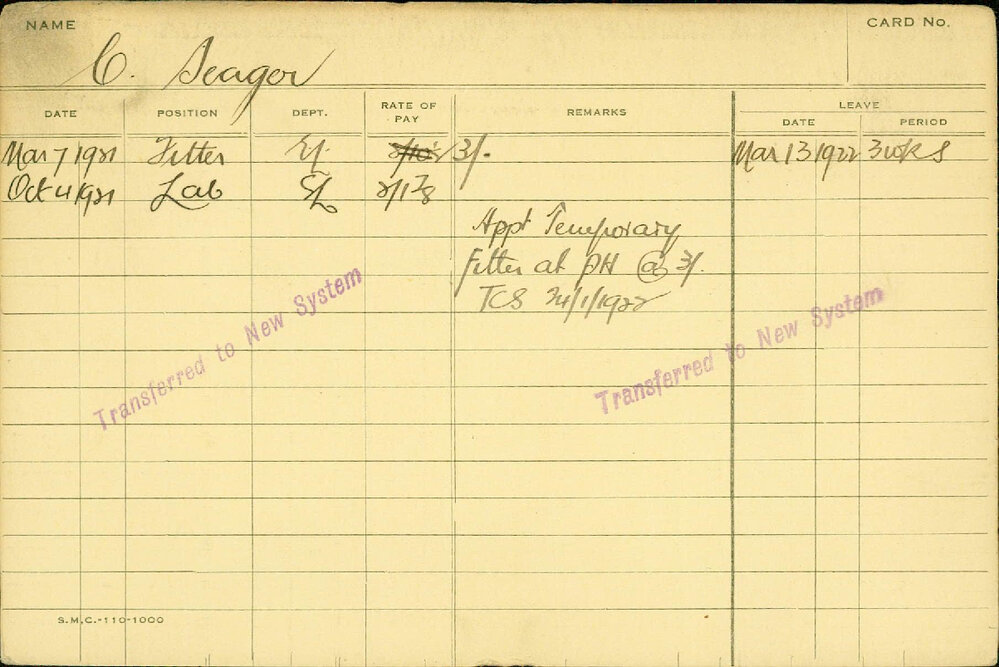 NAME
CARD No.
C. Seager
DATE POSITION DEPT. RATE OF PAY REMARKS LEAVE DATE PERIOD
Mar 7 1921 Fitter 3/- Mar 13 1922 3 wks
Oct 4 1921 Lab
Appt Temporary
Fitter at PH @ 3/-
TCS 24/1/1922
Transferred to New System
Transferred to New System
S.M.C.-110-1000